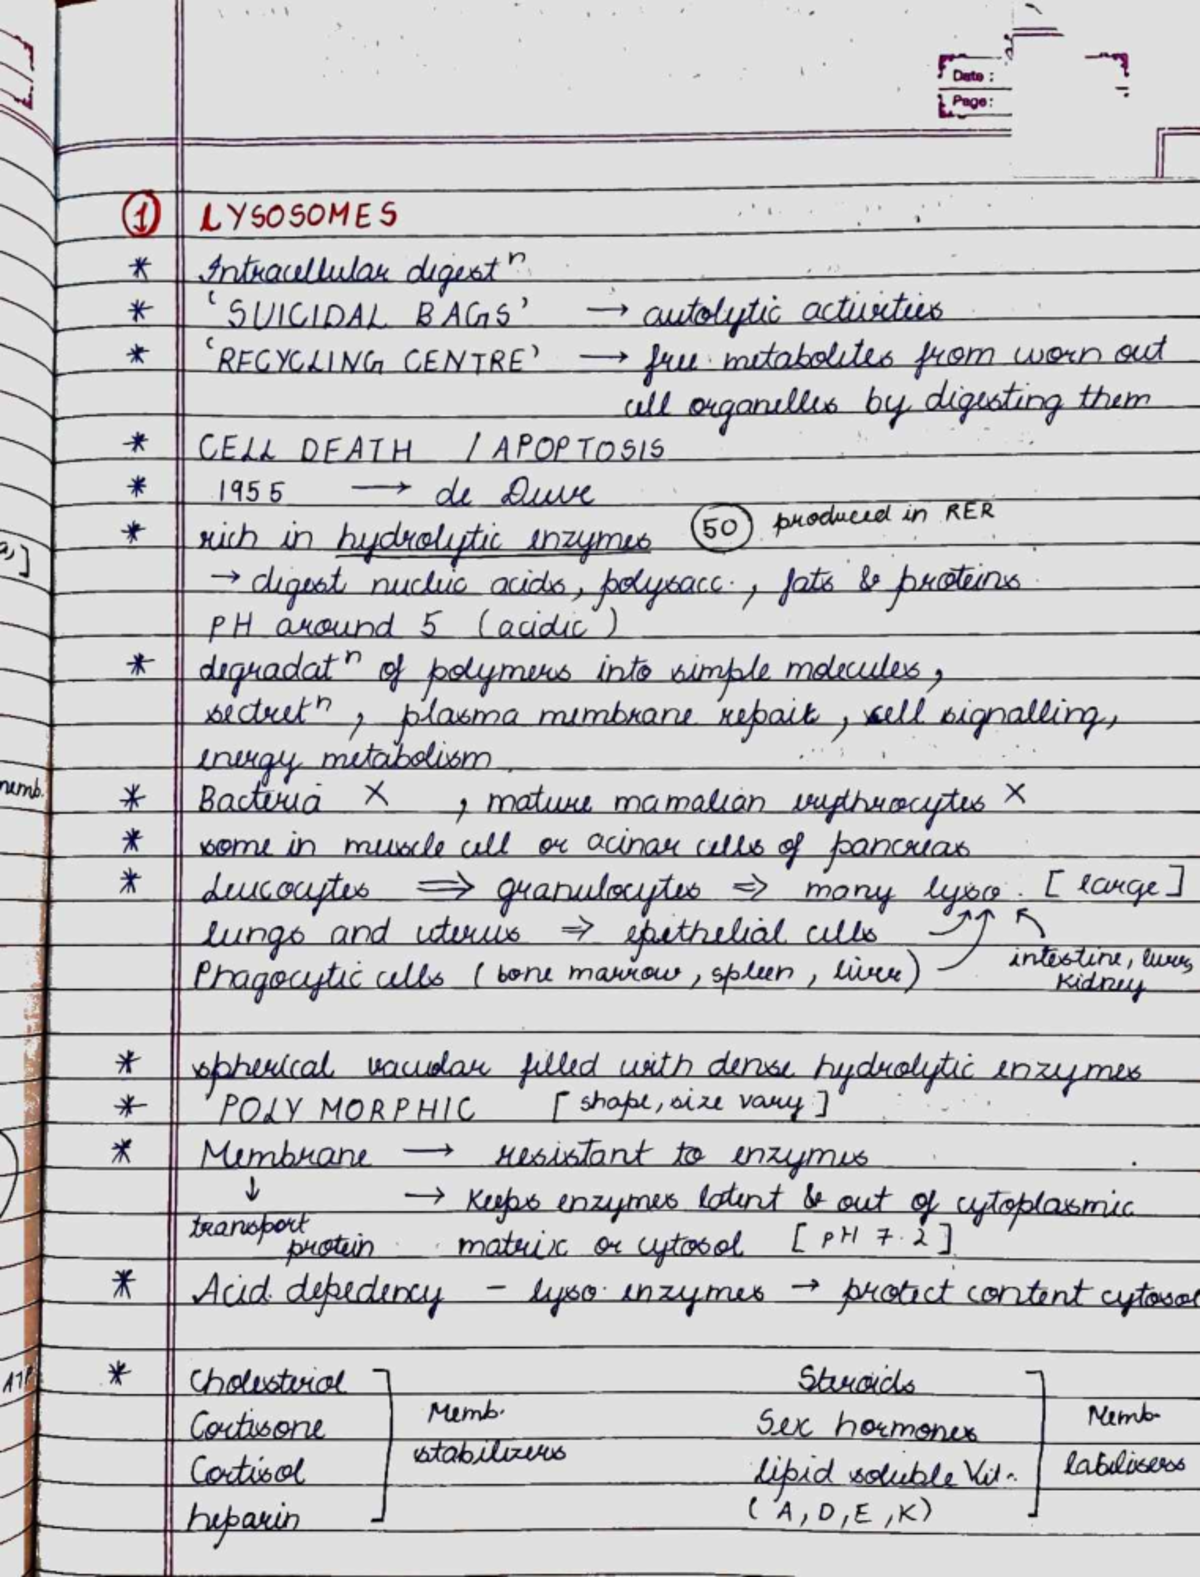 Date :
Page:
① LYSOSOMES
* Intracellular digestⁿ
* 'SUICIDAL BAGS' → autolytic activities
* 'RECYCLING CENTRE' → free metabolites from worn out
cell organelles by digesting them
* CELL DEATH / APOPTOSIS
* 1955 → de Duve
* rich in hydrolytic enzymes (50) produced in RER
→ digest nucleic acids, polysacc., fats & proteins
PH around 5 (acidic)
* degradatⁿ of polymers into simple molecules,
secretⁿ, plasma membrane repair, cell signalling,
energy metabolism
memb.
* Bacteria X , mature mamalian erythrocytes X
* some in muscle cell or acinar cells of pancreas
* Leucocytes ⇒ granulocytes ⇒ many lyso. [large]
lungs and uterus ⇒ epithelial cells
intestine, liver,
Phagocytic cells (bone marrow, spleen, liver)
Kidney
* spherical vacuolar filled with dense hydrolytic enzymes
* POLYMORPHIC [shape, size vary]
* Membrane → resistant to enzymes
↓ → Keeps enzymes latent & out of cytoplasmic
transport
protein matrix or cytosol [pH 7.2]
* Acid depedency - lyso. enzymes → protect content cytosol
ATP
* Cholesterol ] Steroids ]
Cortisone Memb. Sex hormones Memb.
Cortisol stabilizers lipid soluble Vit. labilisers
heparin (A, D, E, K)